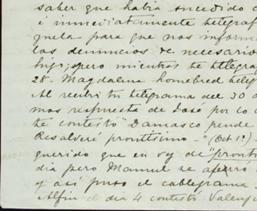 saber que habia sucedido
é inmediatamente telegraf
para que nos inform
las denuncias de necesario
hijo; pero mientras he telegra
28. Magdalena
Al recibir tu telegrama del 30 d
mos respuesta de José por co
te contestó "Damasco pende
Resolveré prontísimo -" (Oct 1º)
querido que en vez de "pronto
dia pero Manuel se aferro
y asi puso el cablegrama
Al fin el dia 4 contestó